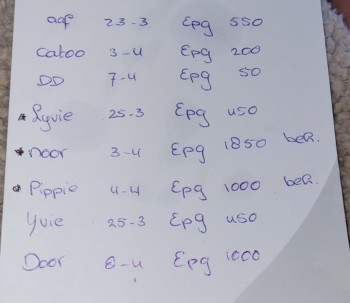 aqf 23-3 Epg 550
catoo 3-4 Epg 200
DD 7-4 Epg 50
* Lyvie 25-3 Epg 450
* noor 3-4 Epg 1850 beh.
* Pippie 4-4 Epg 1000 beh.
Yvie 25-3 Epg 450
Door 8-4 Epg 1000